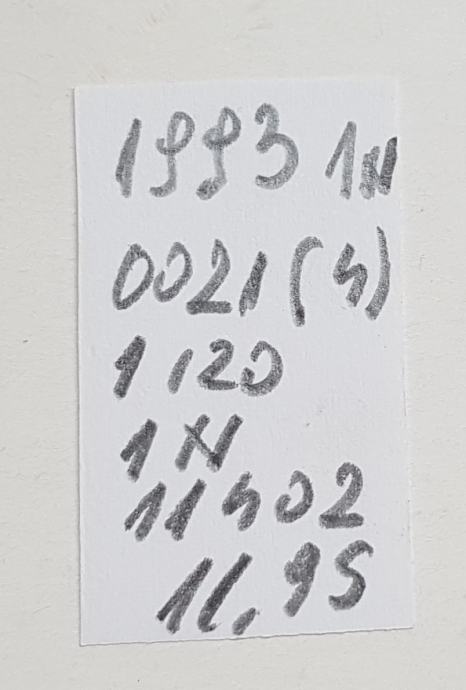 1993 1N
0021 (4)
1 120
1 N
11402
11,95